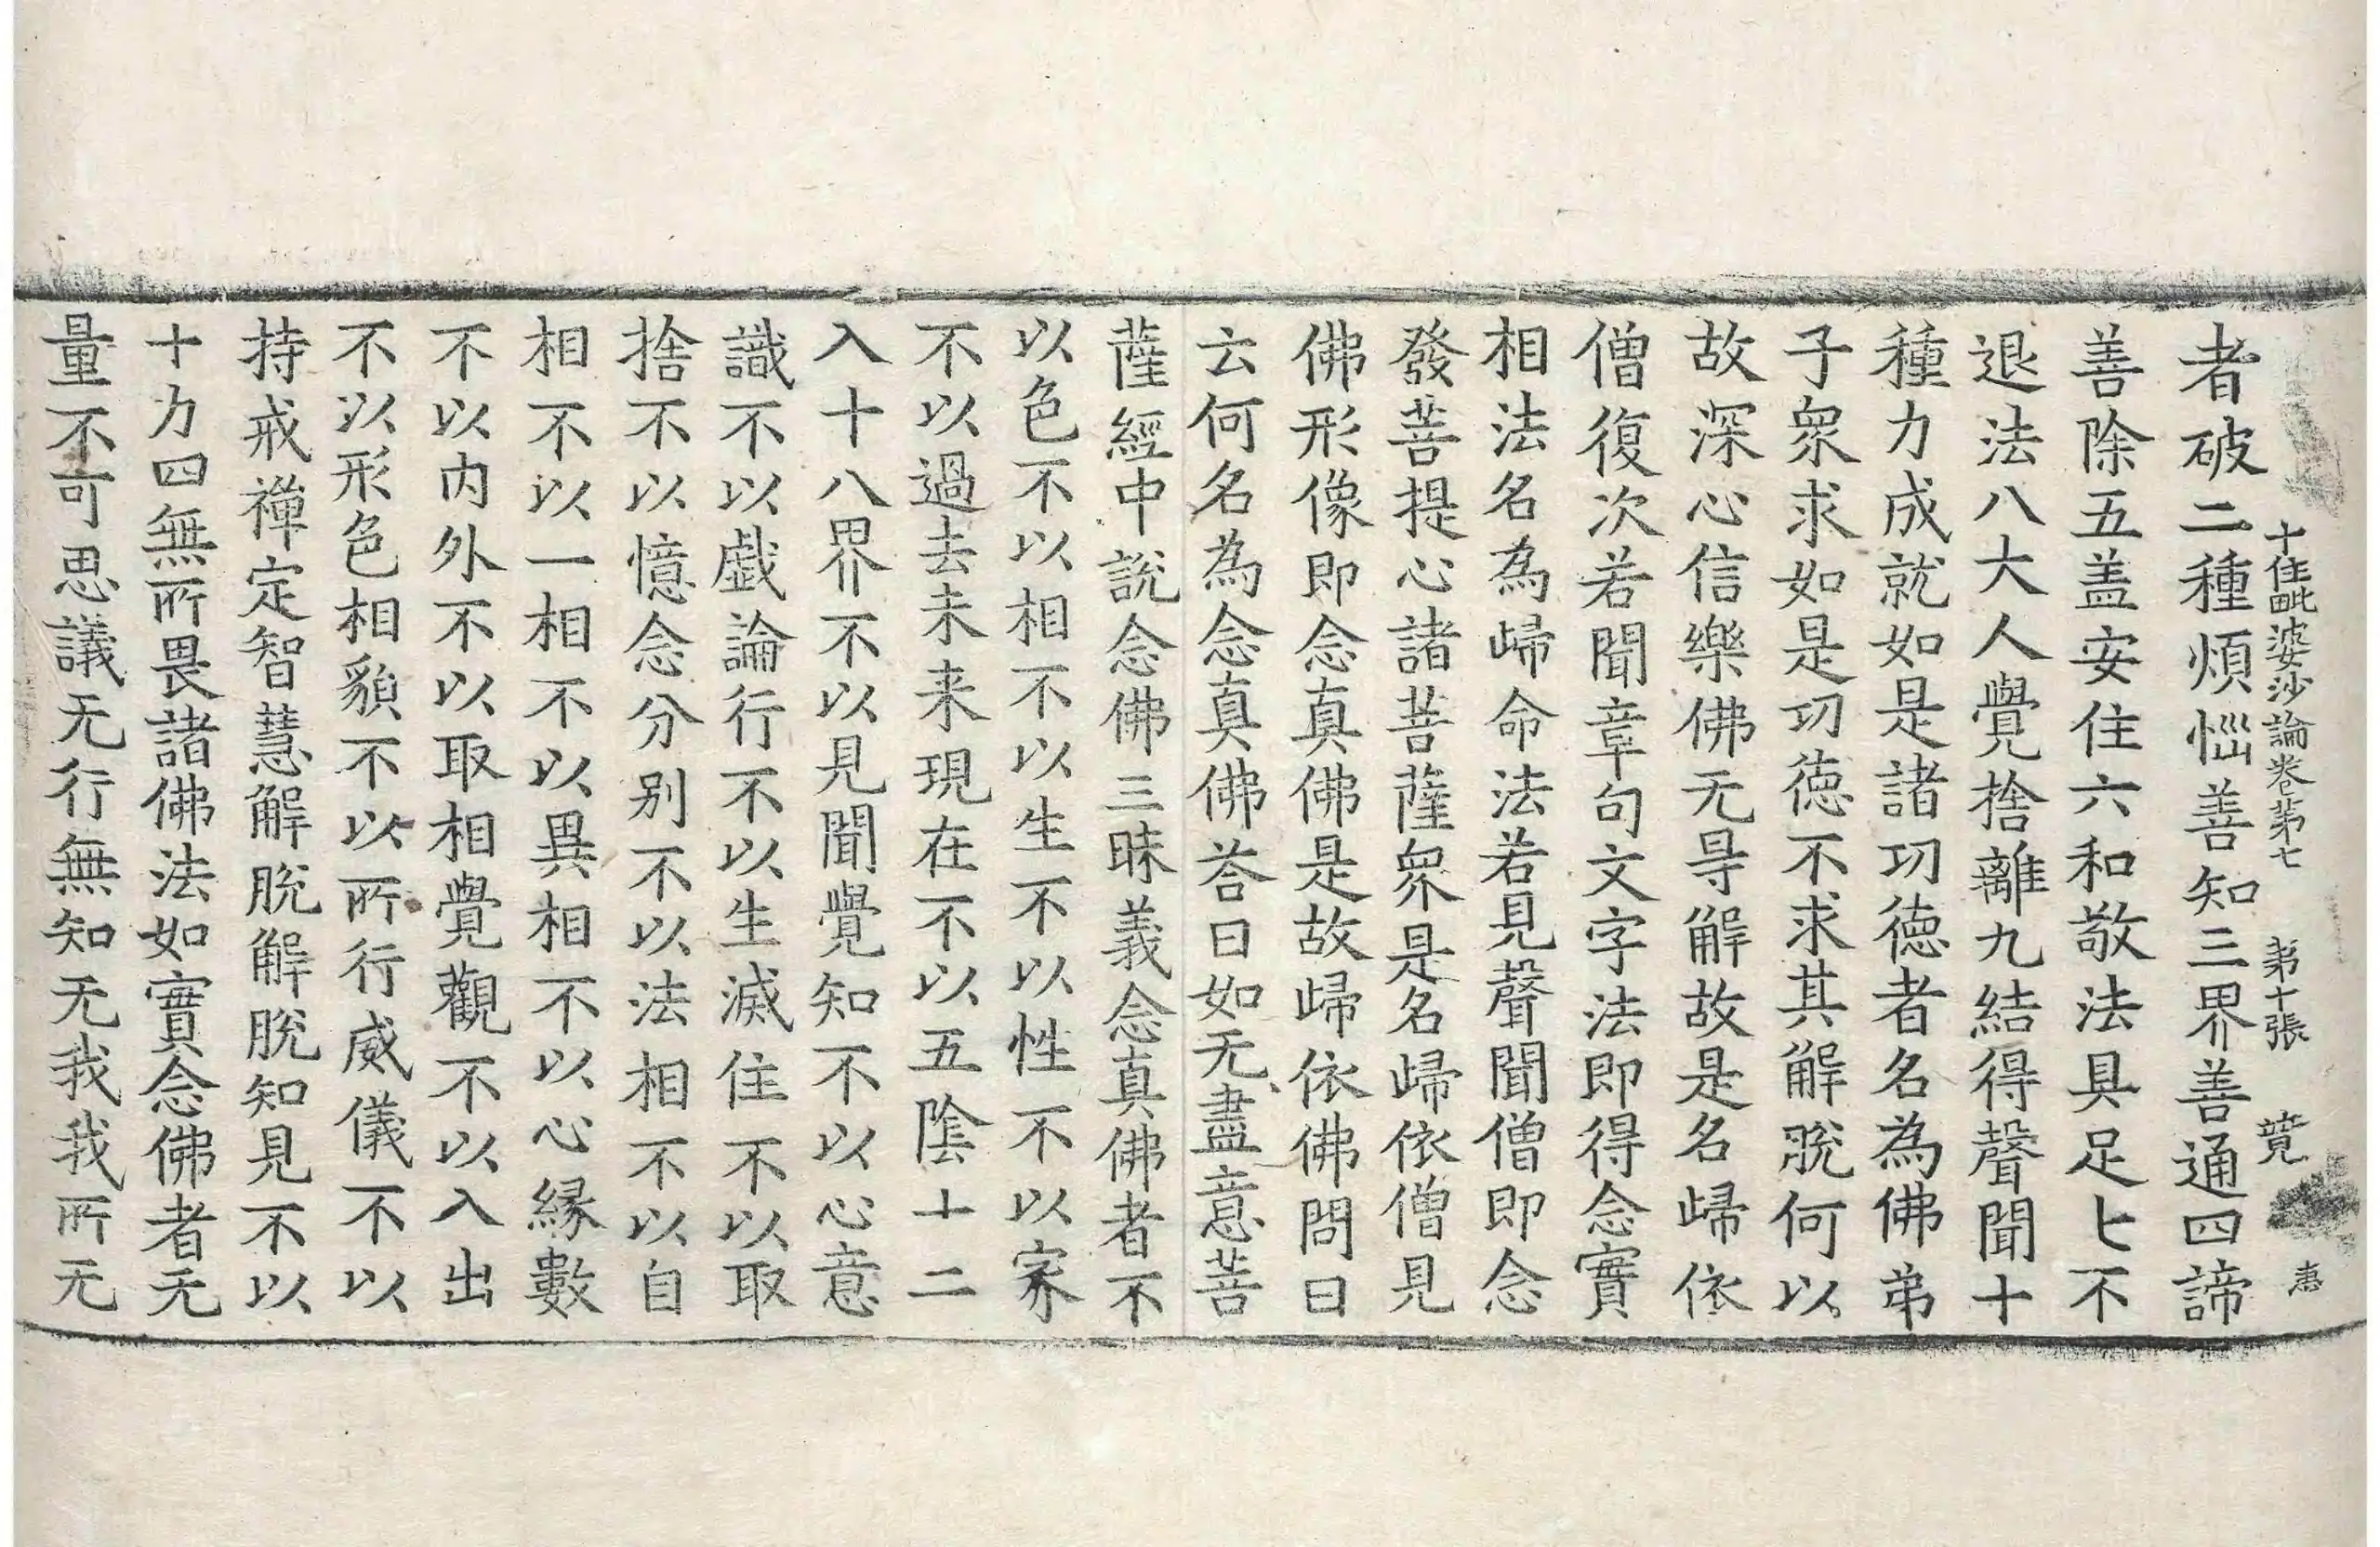 十住毗婆沙論卷苐七 苐十張 㝵 恵
者破二種煩惱善知三界善通四諦
善除五盖安住六和敬法具足七不
退法八大人覺捨離九結得聲聞十
種力成就如是諸㓛德者名為佛弟
子衆求如是㓛徳不求其解脫何以
故深心信樂佛无㝵解故是名歸依
僧復次若聞章句文字法即得念實
相法名為歸命法若見聲聞僧即念
發菩提心諸菩薩衆是名歸依僧見
佛形像即念真佛是故歸依佛問曰
云何名為念真佛荅曰如无盡意菩
薩經中說念佛三昧義念真佛者不
以色不以相不以生不以性不以家
不以過去未来現在不以五陰十二
入十八界不以見聞覺知不以心意
識不以戯論行不以生滅住不以取
捨不以憶念分别不以法相不以自
相不以一相不以異相不以心緣數
不以内外不以取相覺觀不以入出
不以形色相貌不以所行威儀不以
持戒禪定智慧解脫解脫知見不以
十力四無所畏諸佛法如實念佛者无
量不可思議无行無知无我我所无